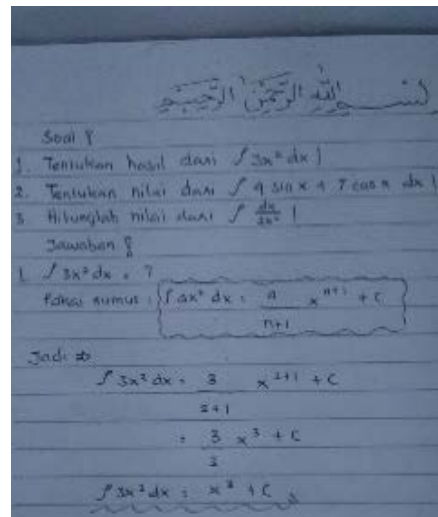 بسم الله الرحمن الرحيم
Soal :
1. Tentukan hasil dari ∫ 3x² dx !
2. Tentukan nilai dari ∫ 4 sin x + 7 cos x dx !
3. Hitunglah nilai dari ∫ dx !
Jawaban :
1. ∫ 3x² dx = ?
Pakai rumus : ∫ axⁿ dx = a/n+1 xⁿ⁺¹ + C
Jadi ⇒
∫ 3x² dx = 3/2+1 x²⁺¹ + C
= 3/3 x³ + C
∫ 3x² dx = x³ + C